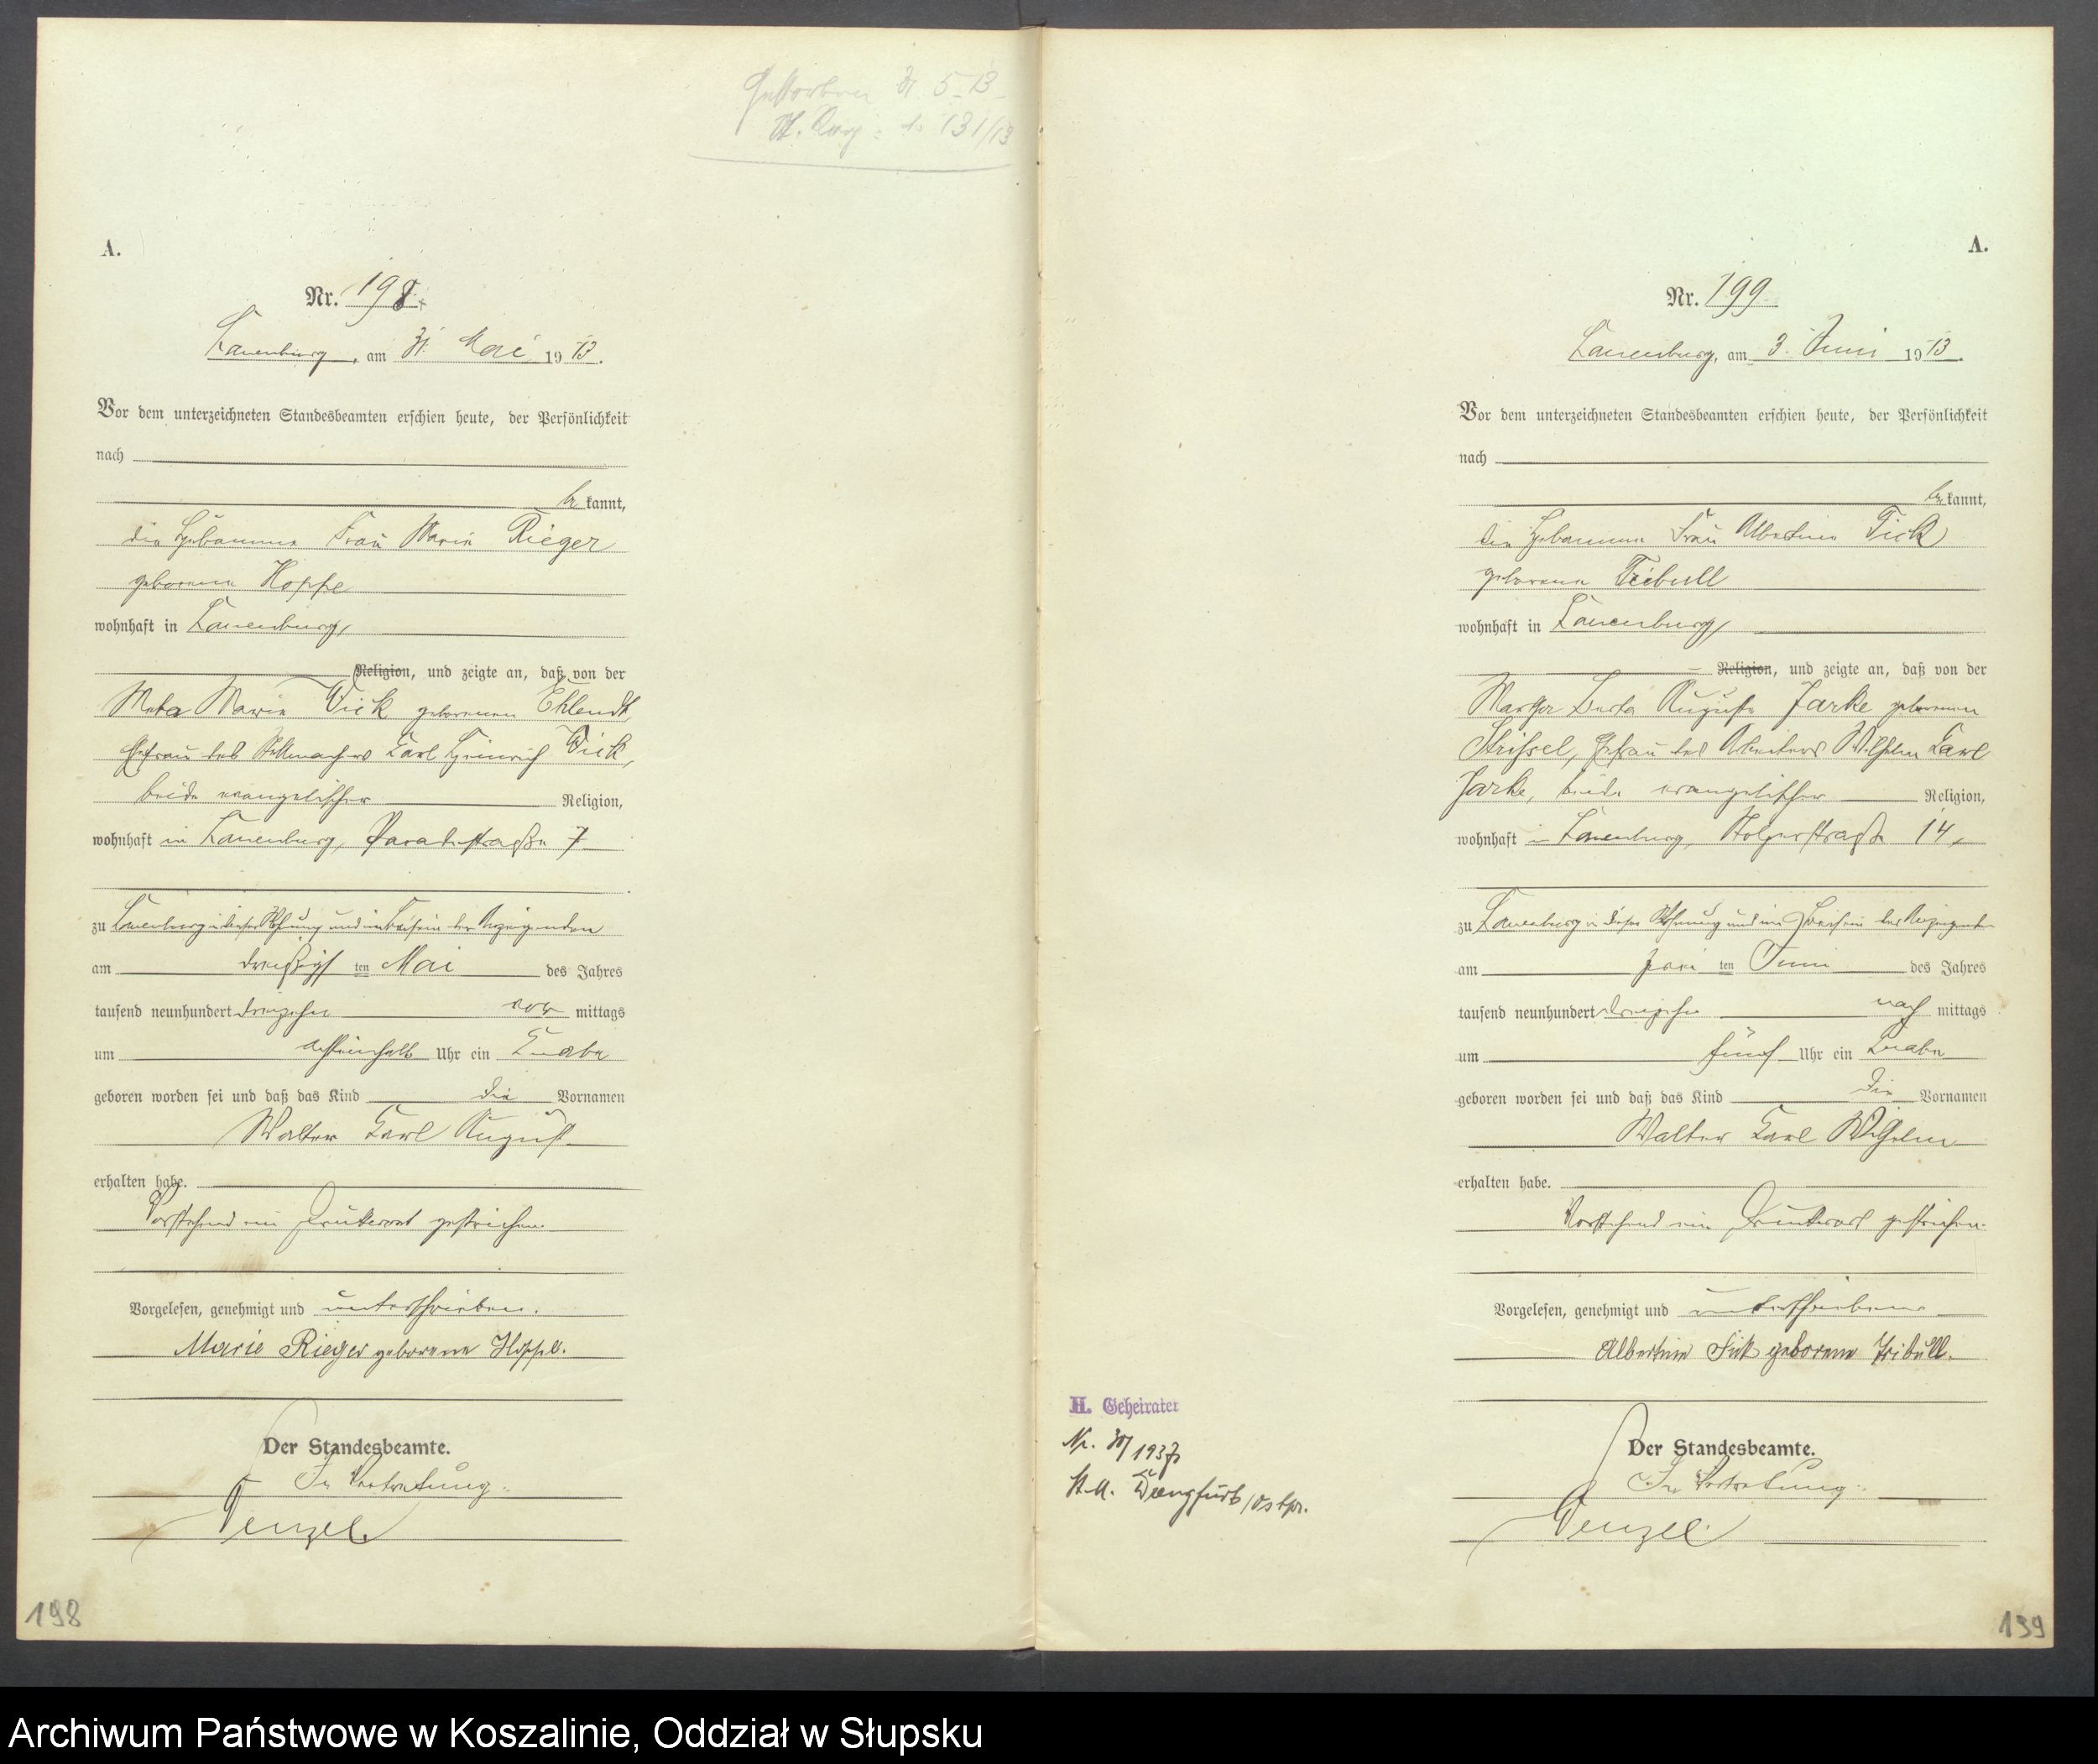 Gestorben 31. 5. 13
St. Reg. No 131/13
A.
Nr. 198.
Lauenburg, am 31. Mai 1913.
Vor dem unterzeichneten Standesbeamten erschien heute, der Persönlichkeit
nach
bekannt,
die Hebamme Frau Marie Rieger
geborene Hoppe
wohnhaft in Lauenburg,
Religion, und zeigte an, daß von der
Meta Marie Vick geborenen Ehlendt,
Ehefrau des Stellmachers Karl Heinrich Vick,
beide evangelischer Religion,
wohnhaft in Lauenburg, Paradestraße 7
zu Lauenburg in dieser Wohnung und im Beisein der Anzeigenden
am dreißigsten Mai des Jahres
tausend neunhundert dreizehn vormittags
um Uhr ein Knabe
geboren worden sei und daß das Kind die Vornamen
Walter Karl August
erhalten habe.
Vorstehend ein Druckwort gestrichen.
Vorgelesen, genehmigt und unterschrieben.
Marie Rieger geborene Hoppe.
Der Standesbeamte.
In Vertretung.
Wenzel
198
A.
Nr. 199.
Lauenburg, am 3. Juni 1913.
Vor dem unterzeichneten Standesbeamten erschien heute, der Persönlichkeit
nach
bekannt,
die Hebamme Frau Albertine Fick
geborene Tribull
wohnhaft in Lauenburg,
Religion, und zeigte an, daß von der
Martha Berta Auguste Jarke geborenen
Strißel, Ehefrau des Arbeiters Wilhelm Karl
Jarke, beide evangelischer Religion,
wohnhaft in Lauenburg, Stolperstraße 14,
zu Lauenburg in dieser Wohnung und im Beisein der Anzeigenden
am zweiten Juni des Jahres
tausend neunhundert dreizehn nachmittags
um fünf Uhr ein Knabe
geboren worden sei und daß das Kind die Vornamen
Walter Karl Wilhelm
erhalten habe.
Vorstehend ein Druckwort gestrichen.
Vorgelesen, genehmigt und unterschrieben
Albertine Fick geborene Tribull.
H. Geheiratet
Nr. 1937
St. A. Drengfurt/Ostpr.
Der Standesbeamte.
In Vertretung.
Wenzel.
199
Archiwum Państwowe w Koszalinie, Oddział w Słupsku